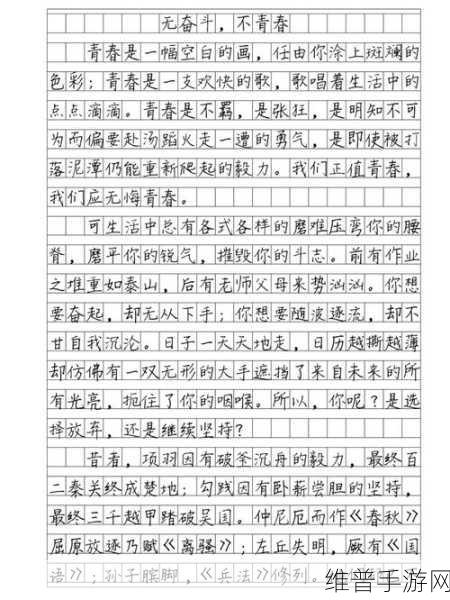 无奋斗，不青春
青春是一幅空白的画，任由你涂上斑斓的
色彩；青春是一支欢快的歌，歌唱着生活中的
点点滴滴。青春是不羁，是张狂，是明知不可
为而偏要赴汤蹈火走一遭的勇气，是即使被打
落泥潭仍能重新爬起的毅力。我们正值青春，
我们应无悔青春。
可生活中总有各式各样的磨难压弯你的腰
脊，磨平你的锐气，摧毁你的斗志。前有作业
之堆重如泰山，后有老师父母来势汹汹。你想
要奋起，却无从下手；你想要随波逐流，却不
甘自我沉沦。日子一天天地走，日历越撕越薄
却仿佛有一双无形的大手遮挡了来自未来的所
有光亮，扼住了你的咽喉。所以，你呢？是选
择放弃，还是继续坚持？
昔者，项羽因有破釜沉舟的毅力，最终百
二秦关终成楚地；勾践因有卧薪尝胆的坚持，
最终三千越甲踏破吴国。仲尼厄而作《春秋》
屈原放逐乃赋《离骚》；左丘失明，厥有《国
语》；孙子膑脚，《兵法》修列。
维普手游网